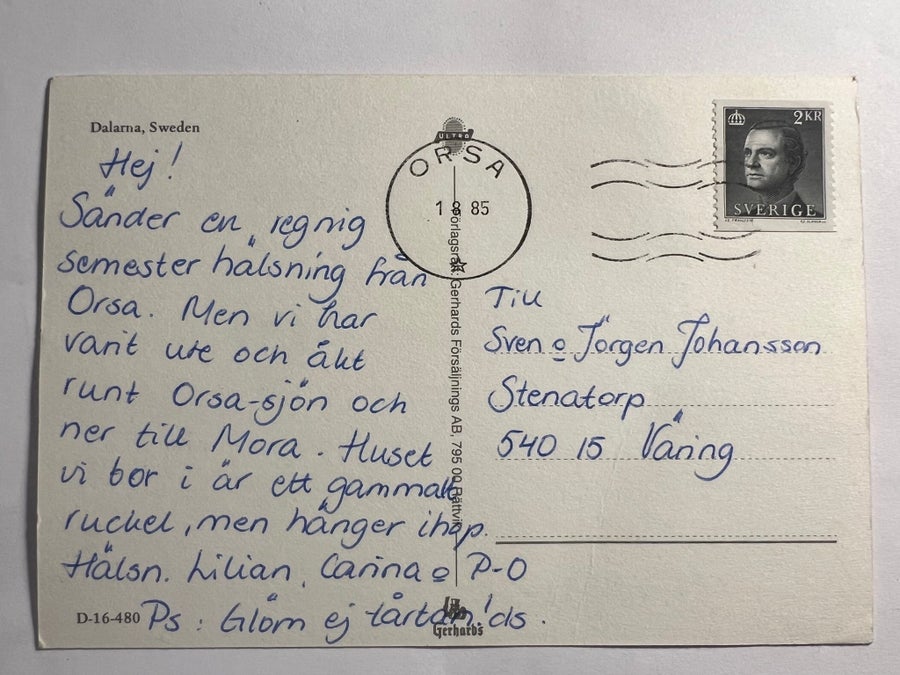 Dalarna, Sweden
Hej!
Sänder en regnig
semester hälsning från
Orsa. Men vi har
varit ute och åkt
runt Orsa-sjön och
ner till Mora. Huset
vi bor i är ett gammalt
ruckel, men hänger ihop.
Hälsn. Lilian, Carina o P-O
Ps: Glöm ej tårtan! ds.
D-16-480
ULTRA
ORSA
1 8 85
Förlagsrätt: Gerhards Försäljnings AB, 795 00 Rättvik
Gerhards
2 KR
SVERIGE
Till
Sven o Jörgen Johansson
Stenatorp
540 15 Väring